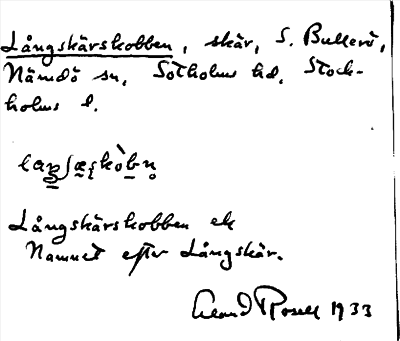 Långskärskobben, skär, S. Bullerö,
Nämdö sn, Sotholms hd, Stock-
holms l.
Långskärskobben ek
Namnet efter Långskär.
Rosell 1933